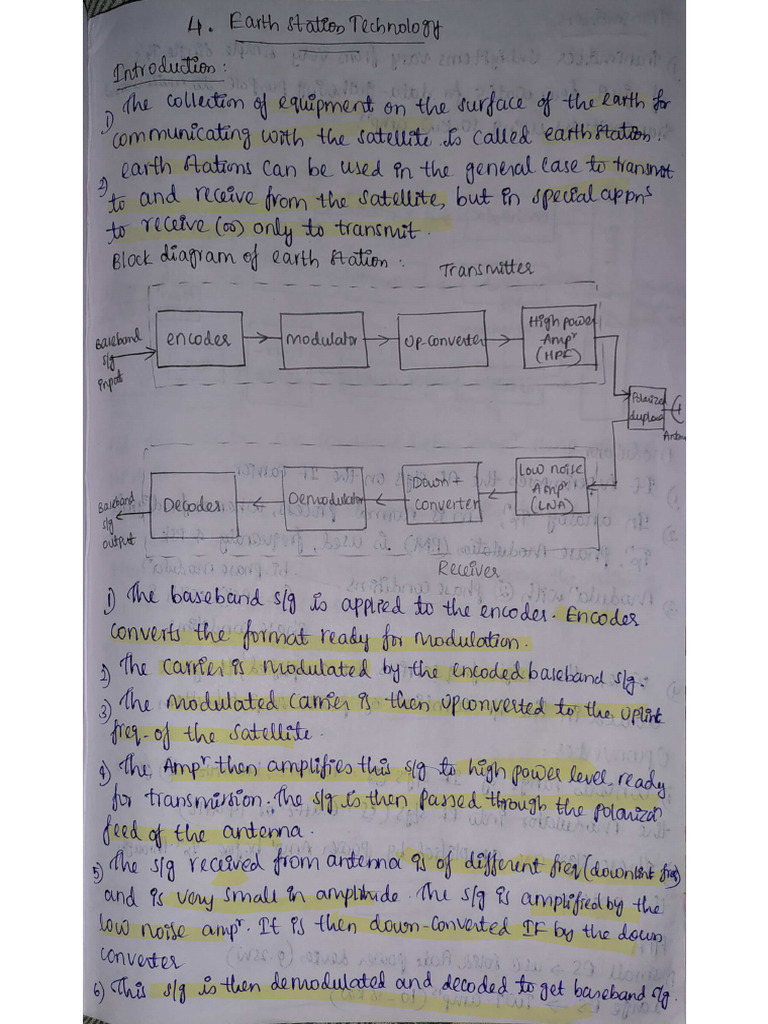 4. Earth Station Technology
Introduction:
1) The collection of equipment on the surface of the earth for
communicating with the satellite is called earth station.
2) earth stations can be used in the general case to transmit
to and receive from the satellite, but in special appns
to receive (or) only to transmit.
Block diagram of earth station:
Transmitter
Baseband
s/g
input
encoder
modulator
Up-converter
High power
Ampr
(HPE)
Polarized
duplexe
Antenn
Low noise
Ampr
(LNA)
Down+
converter
Demodulator
Decoder
Baseband
s/g
output
Receiver
1) The baseband s/g is applied to the encoder. Encoder
converts the format ready for modulation.
2) The carrier is modulated by the encoded baseband s/g.
3) The modulated carrier is then upconverted to the uplink
freq- of the satellite.
4) The Ampr then amplifies this s/g to high power level, ready
for transmission. The s/g is then passed through the polarizer
feed of the antenna.
5) The s/g received from antenna is of different freq (downlink freq)
and is very small in amplitude. The s/g is amplified by the
low noise ampr. It is then down-converted IF by the down
converter
6) This s/g is then demodulated and decoded to get baseband s/g.